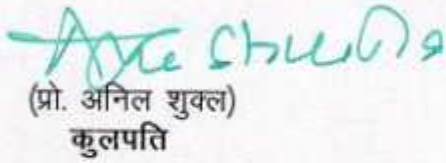 (प्रो. अनिल शुक्ल)
कुलपति